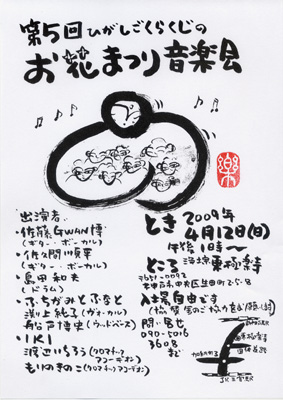 第5回ひがしごくらくじの
お花まつり音楽会
樂
出演者
・佐藤GWAN博
(ギター・ボーカル)
・佐久間順平
(ギター・ボーカル)
・島田和夫
(ドラム)
・ふちがみとふなと
渕上純子(ヴォーカル)
船戸博史(ウッドベース)
・IKI
渡辺いちろう(クロマチックアコーデオン)
もりのきのこ(クロマチックアコーデオン)
とき 2009年
4月12日(日)
午後1時〜
ところ 海緑山 東極楽寺
〒651-0092
神戸市中央区生田町2-5-8
入場自由です
問い合せ
090-5016
3608
まで
東極楽寺
JR三宮駅